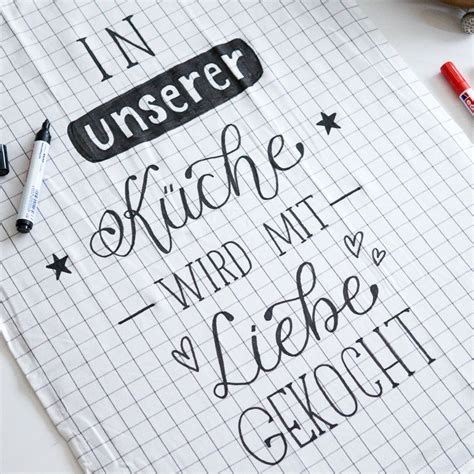 IN
unserer
Küche
WIRD MIT
Liebe
GEKOCHT